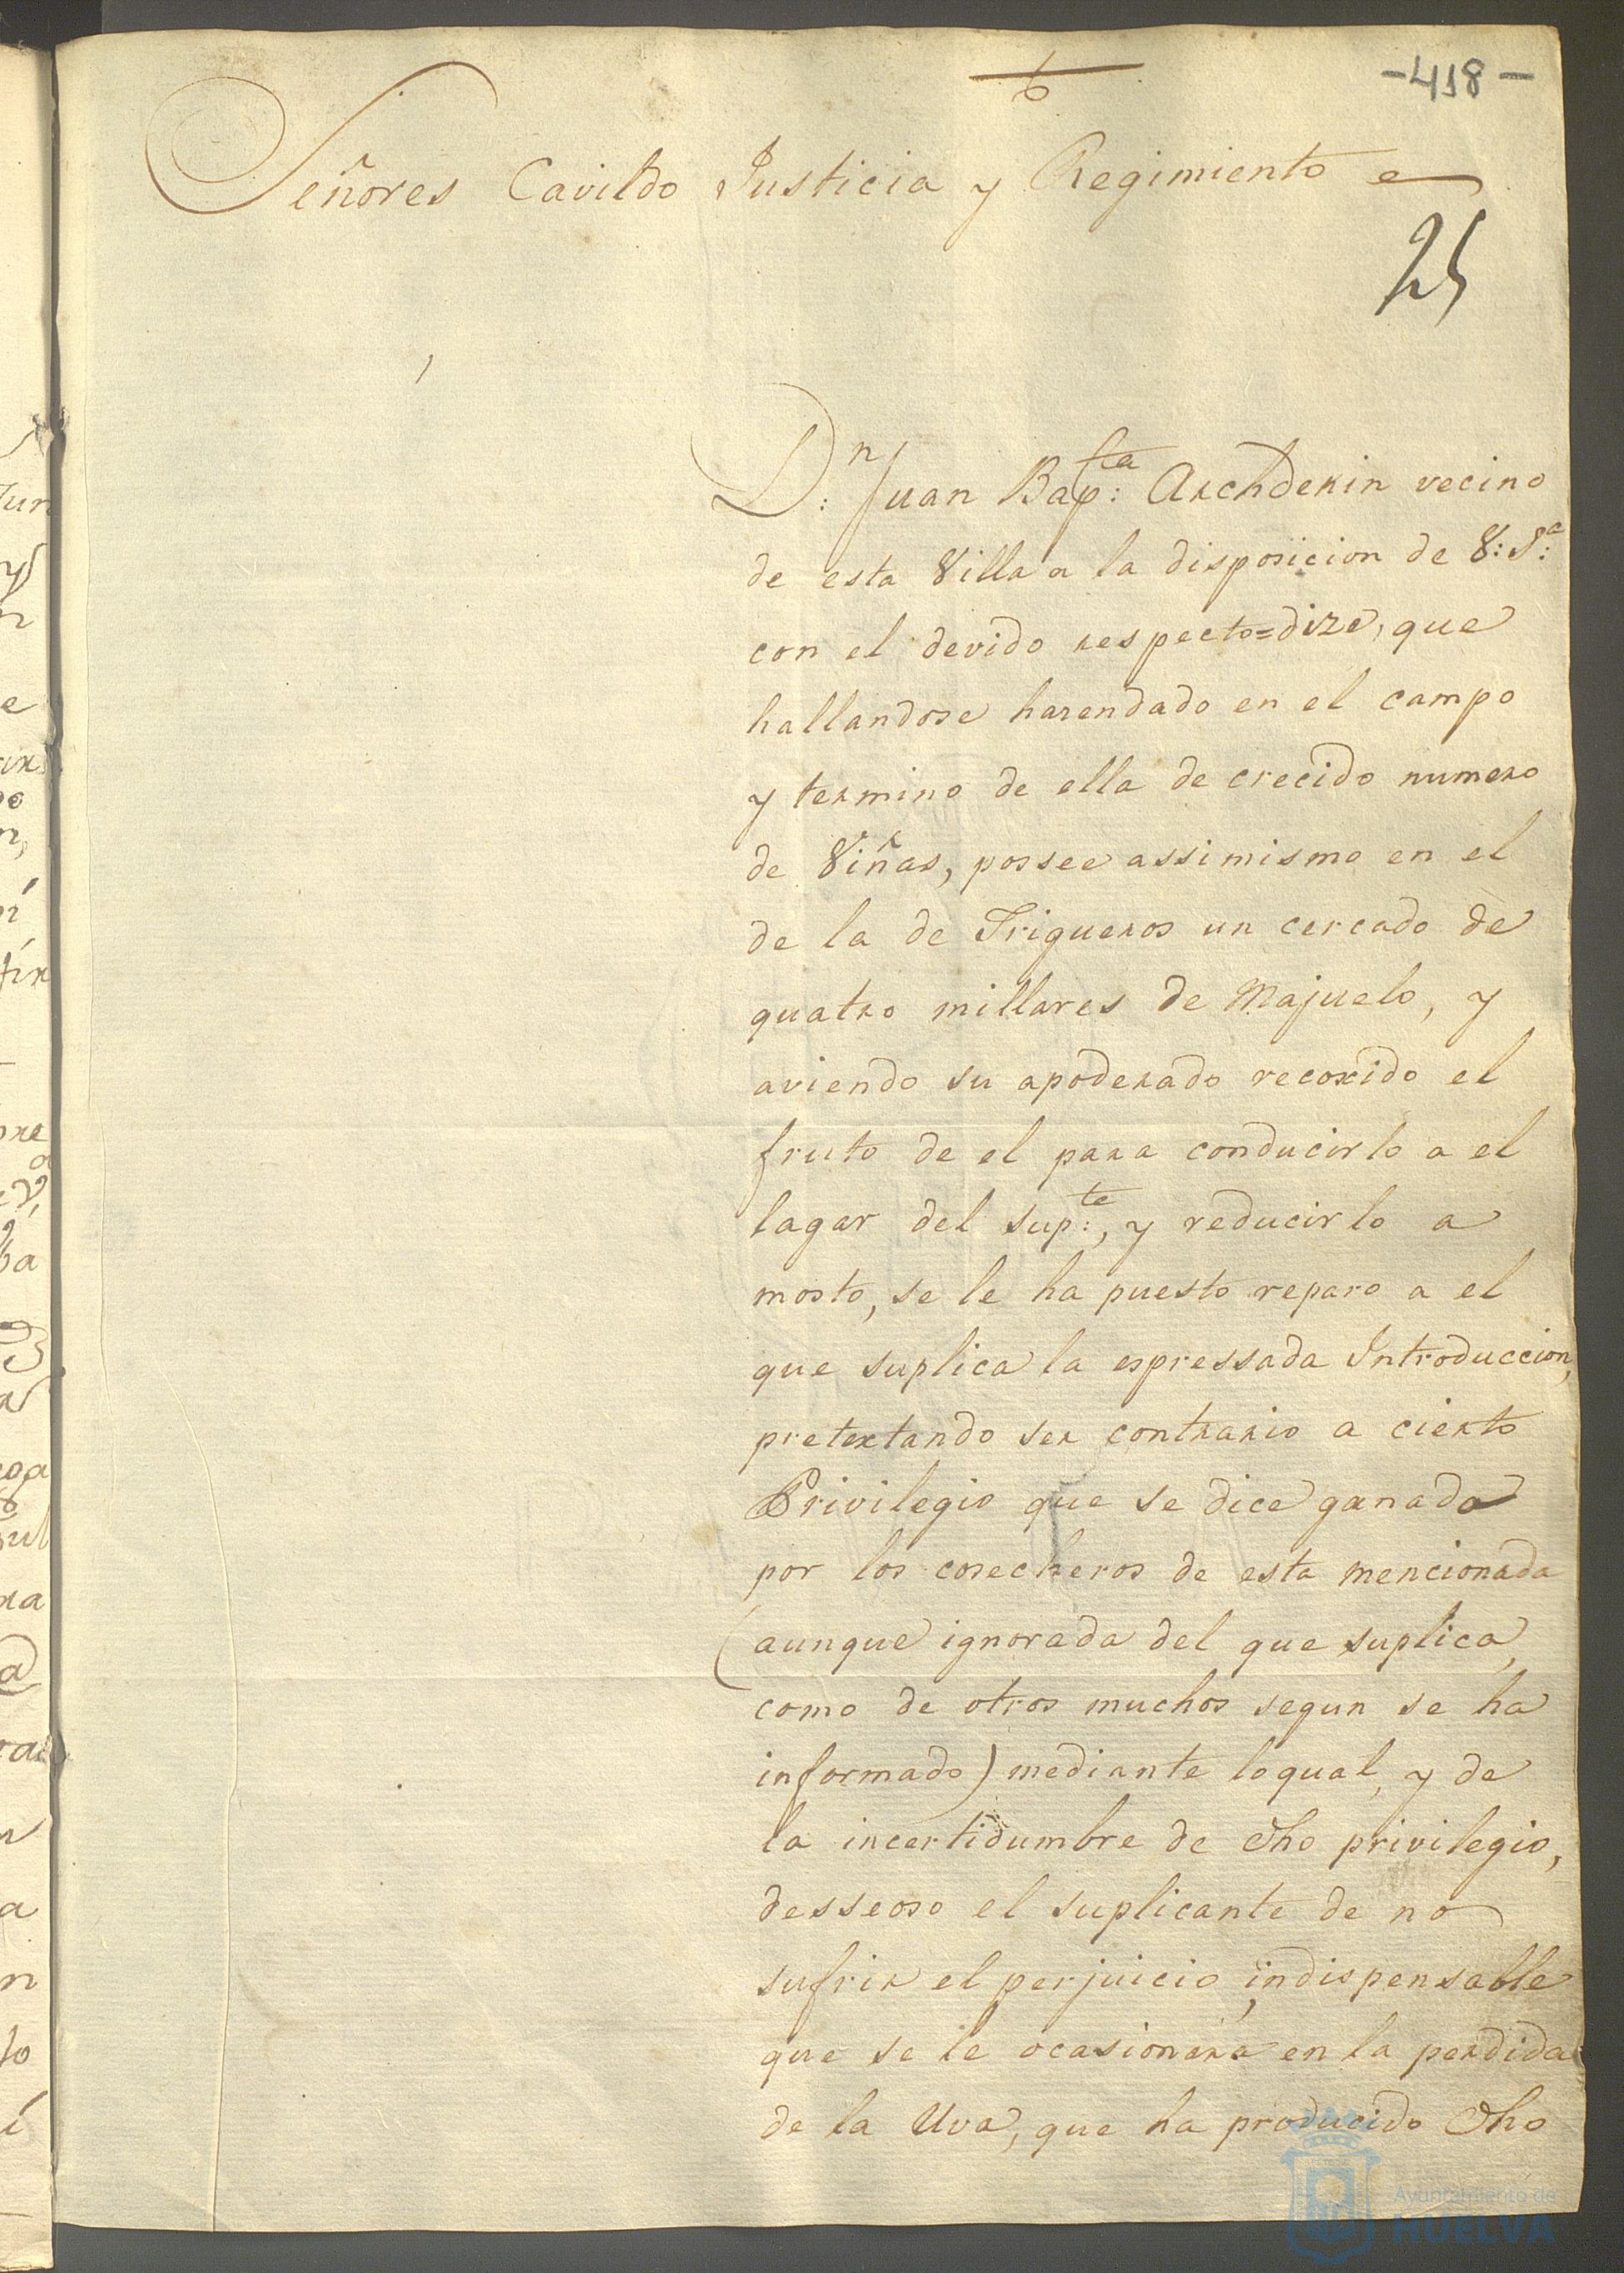 -418-
Señores Cavildo Justicia y Regimiento
25
D.n Juan Bap.ta Archdekin vecino
de esta Villa a la disposicion de V.S.a
con el devido respecto=dize, que
hallandose harendado en el campo
y termino de ella de crecido numero
de Viñas, possee assimismo en el
de la de Trigueros un cercado de
quatro millares de Majuelo, y
aviendo su apoderado recoxido el
fruto de el para conducirlo a el
lagar del sup.te, y reducirlo a
mosto, se le ha puesto reparo a el
que suplica la espressada Introduccion,
pretextando ser contrario a cierto
Privilegio que se dice ganado
por los cosecheros de esta mencionada
(aunque ignorada del que suplica,
como de otros muchos segun se ha
informado) mediante loqual, y de
la incertidumbre de dho privilegio,
desseoso el suplicante de no
sufrir el perjuicio indispensable
que se le ocasionara en la perdida
de la Uva, que ha producido dho
Ayuntamiento de
HUELVA